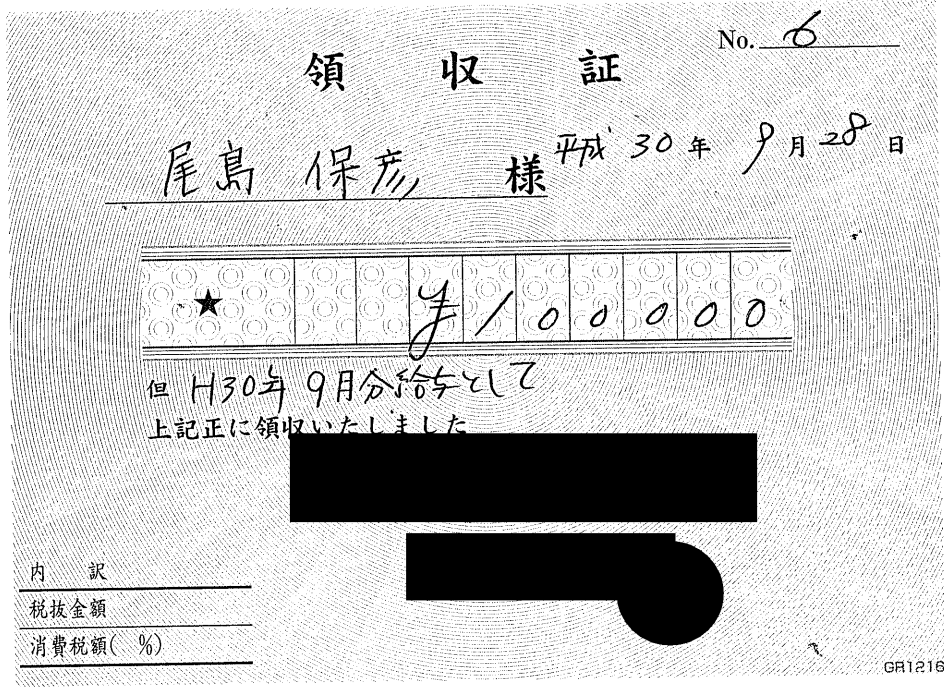 No. 6
領 収 証
尾島 保彦 様
平成 30 年 9 月 28 日
★ ¥100000
但 H30年9月分給与として
上記正に領収いたしました
内 訳
税抜金額
消費税額( %)
GR1216